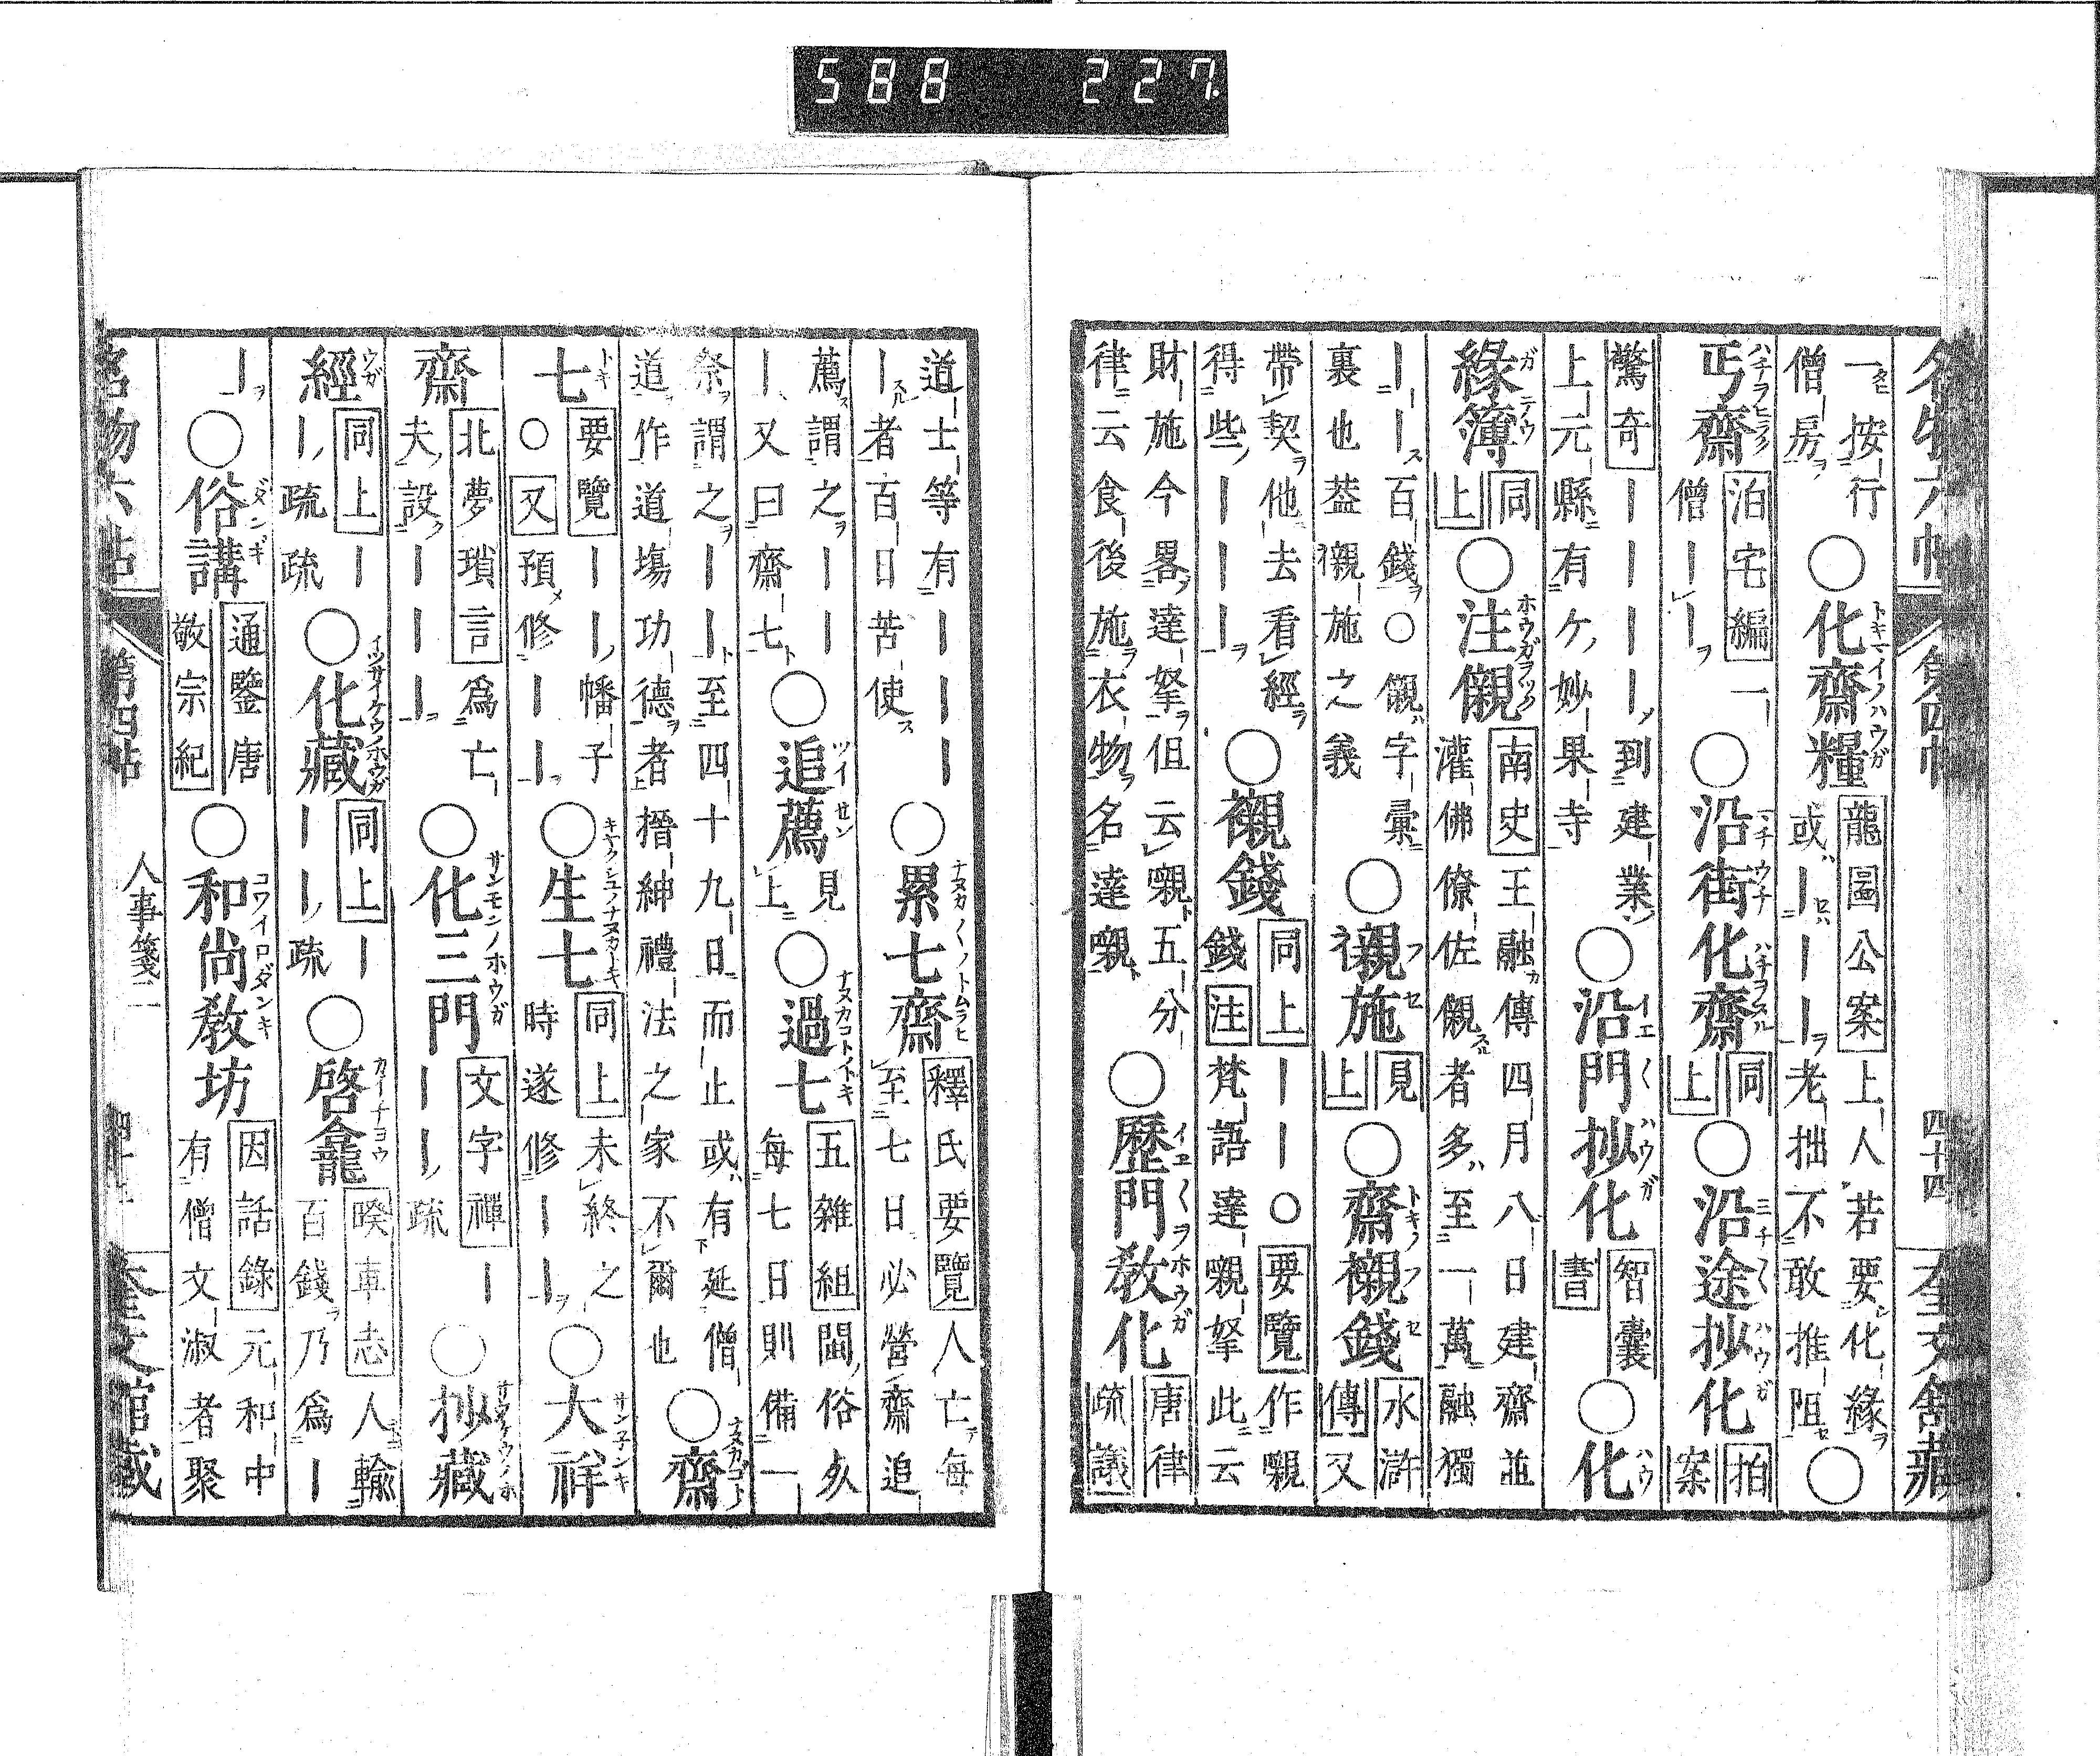 588 227.
名物六帖 第四帖 四十四 奎文舘藏
一按行
僧房
○化齋糧
龍圖公案上人若要化緣
或｜｜｜老拙不敢推阻
○
丐齋
泊宅編一
僧｜｜
○沿街化齋
同
上
○沿途抄化
拍
案
驚奇｜｜｜｜到建業
上元縣有ケ妙果寺
○沿門抄化
智囊
書
○化
緣簿
同
上
○注儭
南史王融傳四月八日建齋並
灌佛僚佐儭者多至一萬融獨
｜｜百錢○儭字彙
裏也葢襯施之義
○襯施
見
上
○齋襯錢
水滸
傳又
帶契他去看經
得些｜｜｜
○襯錢
同上｜｜○要覽作嚫
錢注梵語達嚫拏此云
財施今畧達拏但云嚫五分
律云食後施衣物名達嚫
○歷門敎化
唐律
疏議
道士等有｜｜｜
｜者百日苦使
○累七齋
釋氏要覽人亡每
至七日必營齋追
薦謂之｜｜
｜又曰齋七
○追薦
見
上
○過七
五雜組閩俗夊
每七日則備一
祭謂之｜｜至四十九日而止或有延僧
道作道塲功德者搢紳禮法之家不爾也
○齋
七
要覽｜｜幡子
○又預修｜｜
○生七
同上未終之
時遂修｜｜
○大祥
齋
北夢瑣言爲亡
夫設｜｜｜
○化三門
文字禪｜
｜｜疏
○抄藏
經
同上｜
｜疏疏
○化藏
同上｜
｜｜疏
○啓龕
暌車志人輸
百錢乃爲｜
｜
○俗講
通鑒唐
敬宗紀
○和尚敎坊
因話錄元和中
有僧文淑者聚
名物六帖 第四帖 人事箋二 奎文舘藏